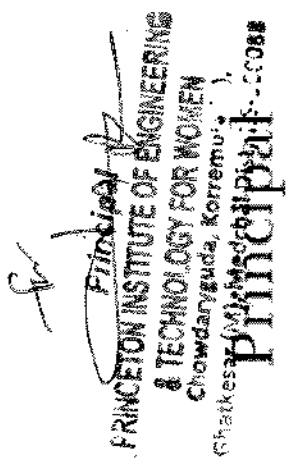 Principal
PRINCETON INSTITUTE OF ENGINEERING
& TECHNOLOGY FOR WOMEN
Chowdaryguda, Korremu
Ghatkesar
Principal